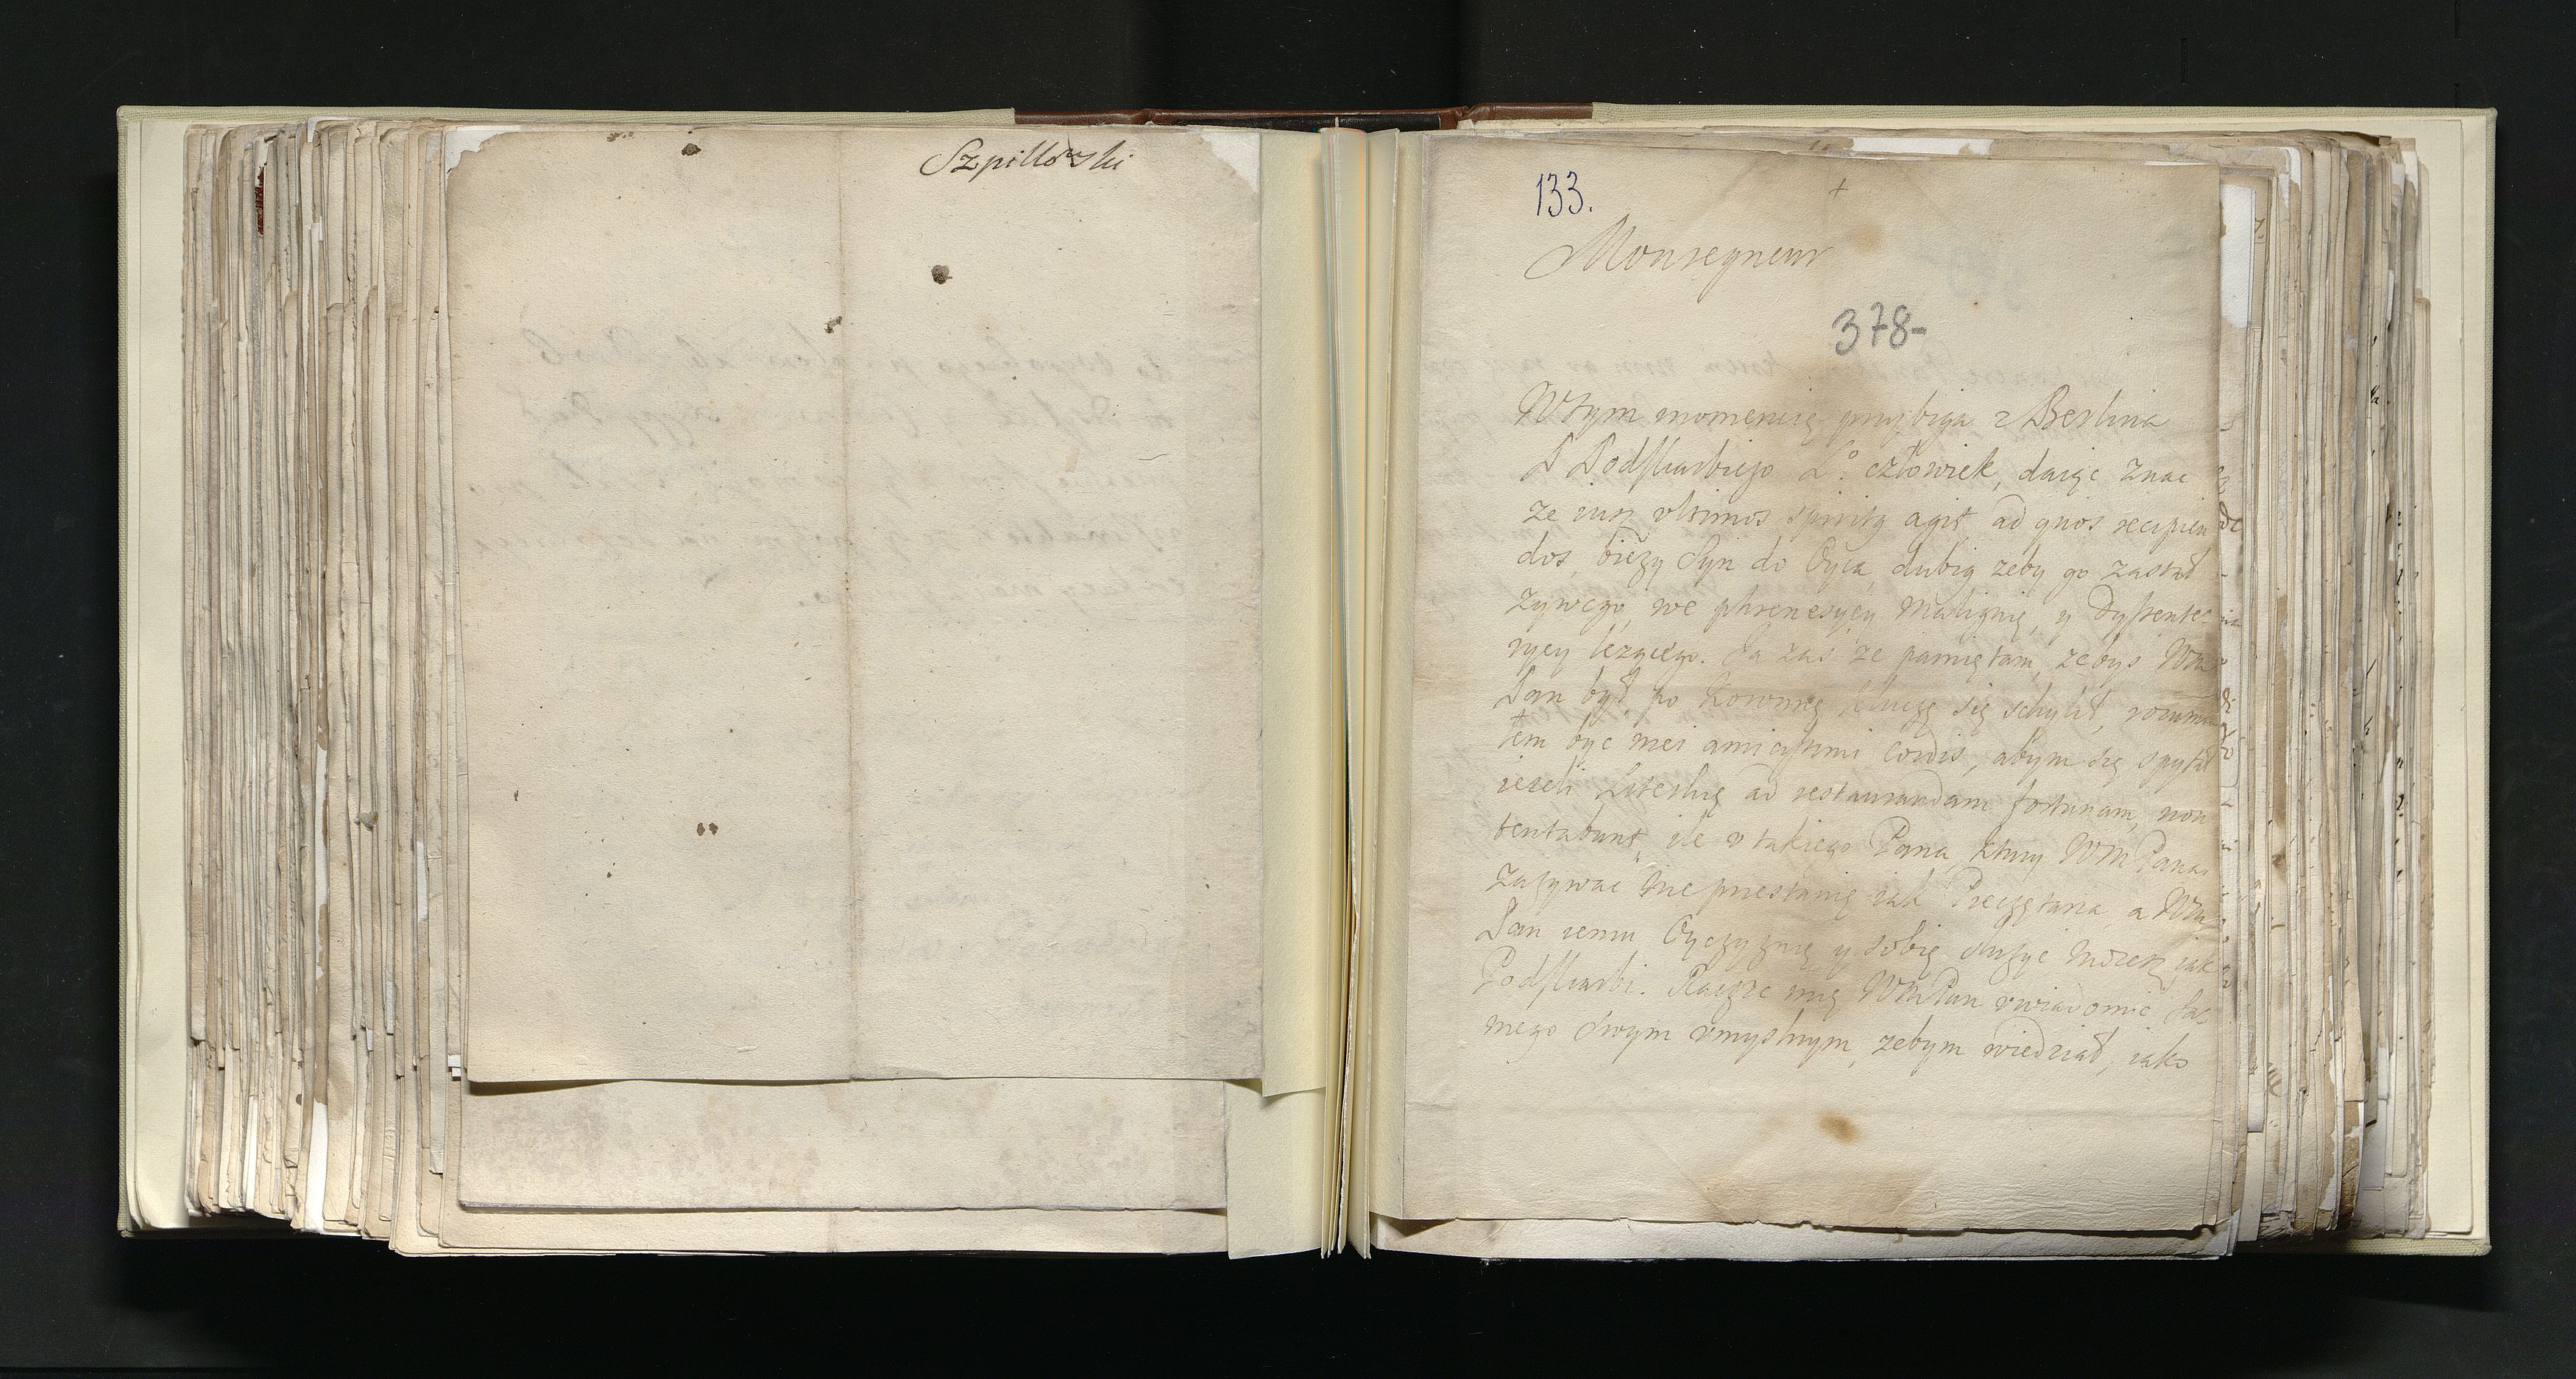 Szpillowski
133.
+
Monsegneur
378-
W tym momencię przybiga z Berlina
P Podskarbiego L.º człowiek, daiąc znac
ze iusz vltimos spiritg agit, ad quos recipien
dos, biezy Syn do Oyca, dubią zeby go zastał
zywego, we phrenesyey malignię, y Dyssente-
ryey lezącego. Ja zas ze pamiętam, zebys Wm
Pan był po Koronną kluczę się schylił, rozumia
łem byc mei amicissimi cordis, abym się spytał
iezeli Litewskię ad restaurandam fortunam, non
tentabunt, ile v takiego Pana, ktury WM Pana
zazywac nie przestanię iak Pieczętarza, a Wm
Pan iemu Oyczyznię y sobię słuzyc mozesz iak
Podskarbi. Raczze mię WMPan vwiadomic sa-
mego swym vmyslnym, zebym wiedział, iako